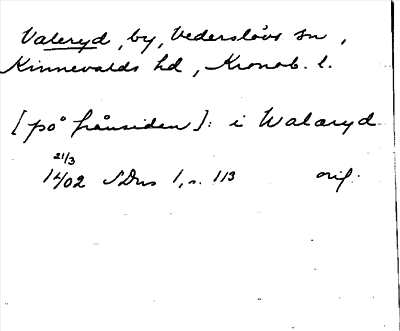 Valeryd, by, Vederslövs sn,
Kinnevalds hd, Kronob. l.
[på frånsiden]: i Walaryd
21/3
1402 SDns 1, s. 113 orig.